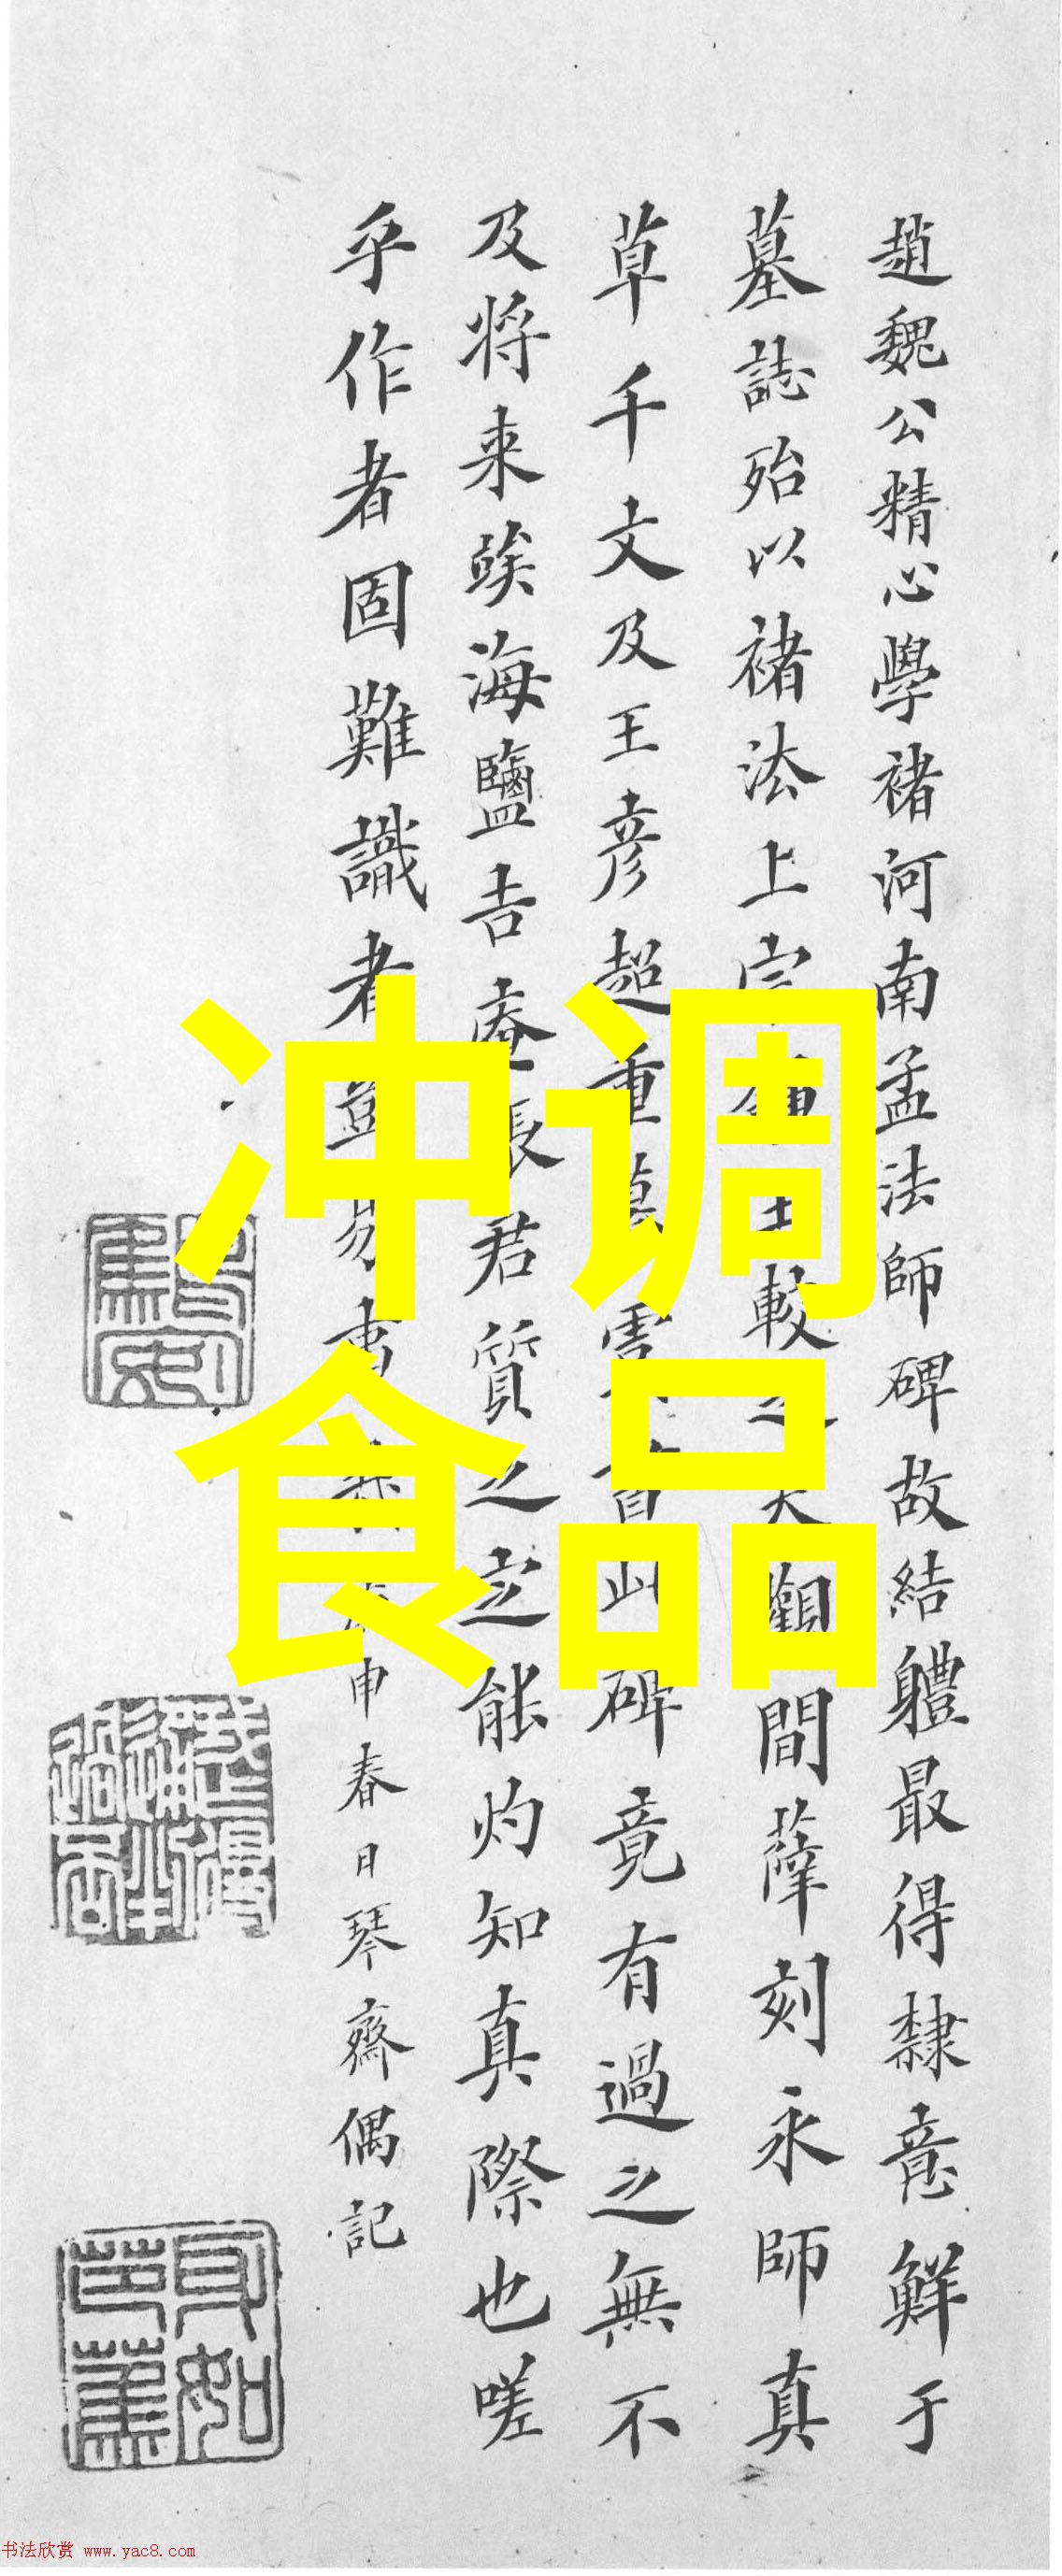 趙魏公精心學褚河南孟法師碑故結體最得隸意鮮于
墓誌殆以褚法上 較之大觀間薛刻永師真
草千文及王彥超重 此碑竟有過之無不
及将来䇃海鹽吉庵張君質之定能灼知真際也嗟
乎作者固難識者 申春日琴齋偶記
冲调
食品
书法欣赏 www.yac8.com